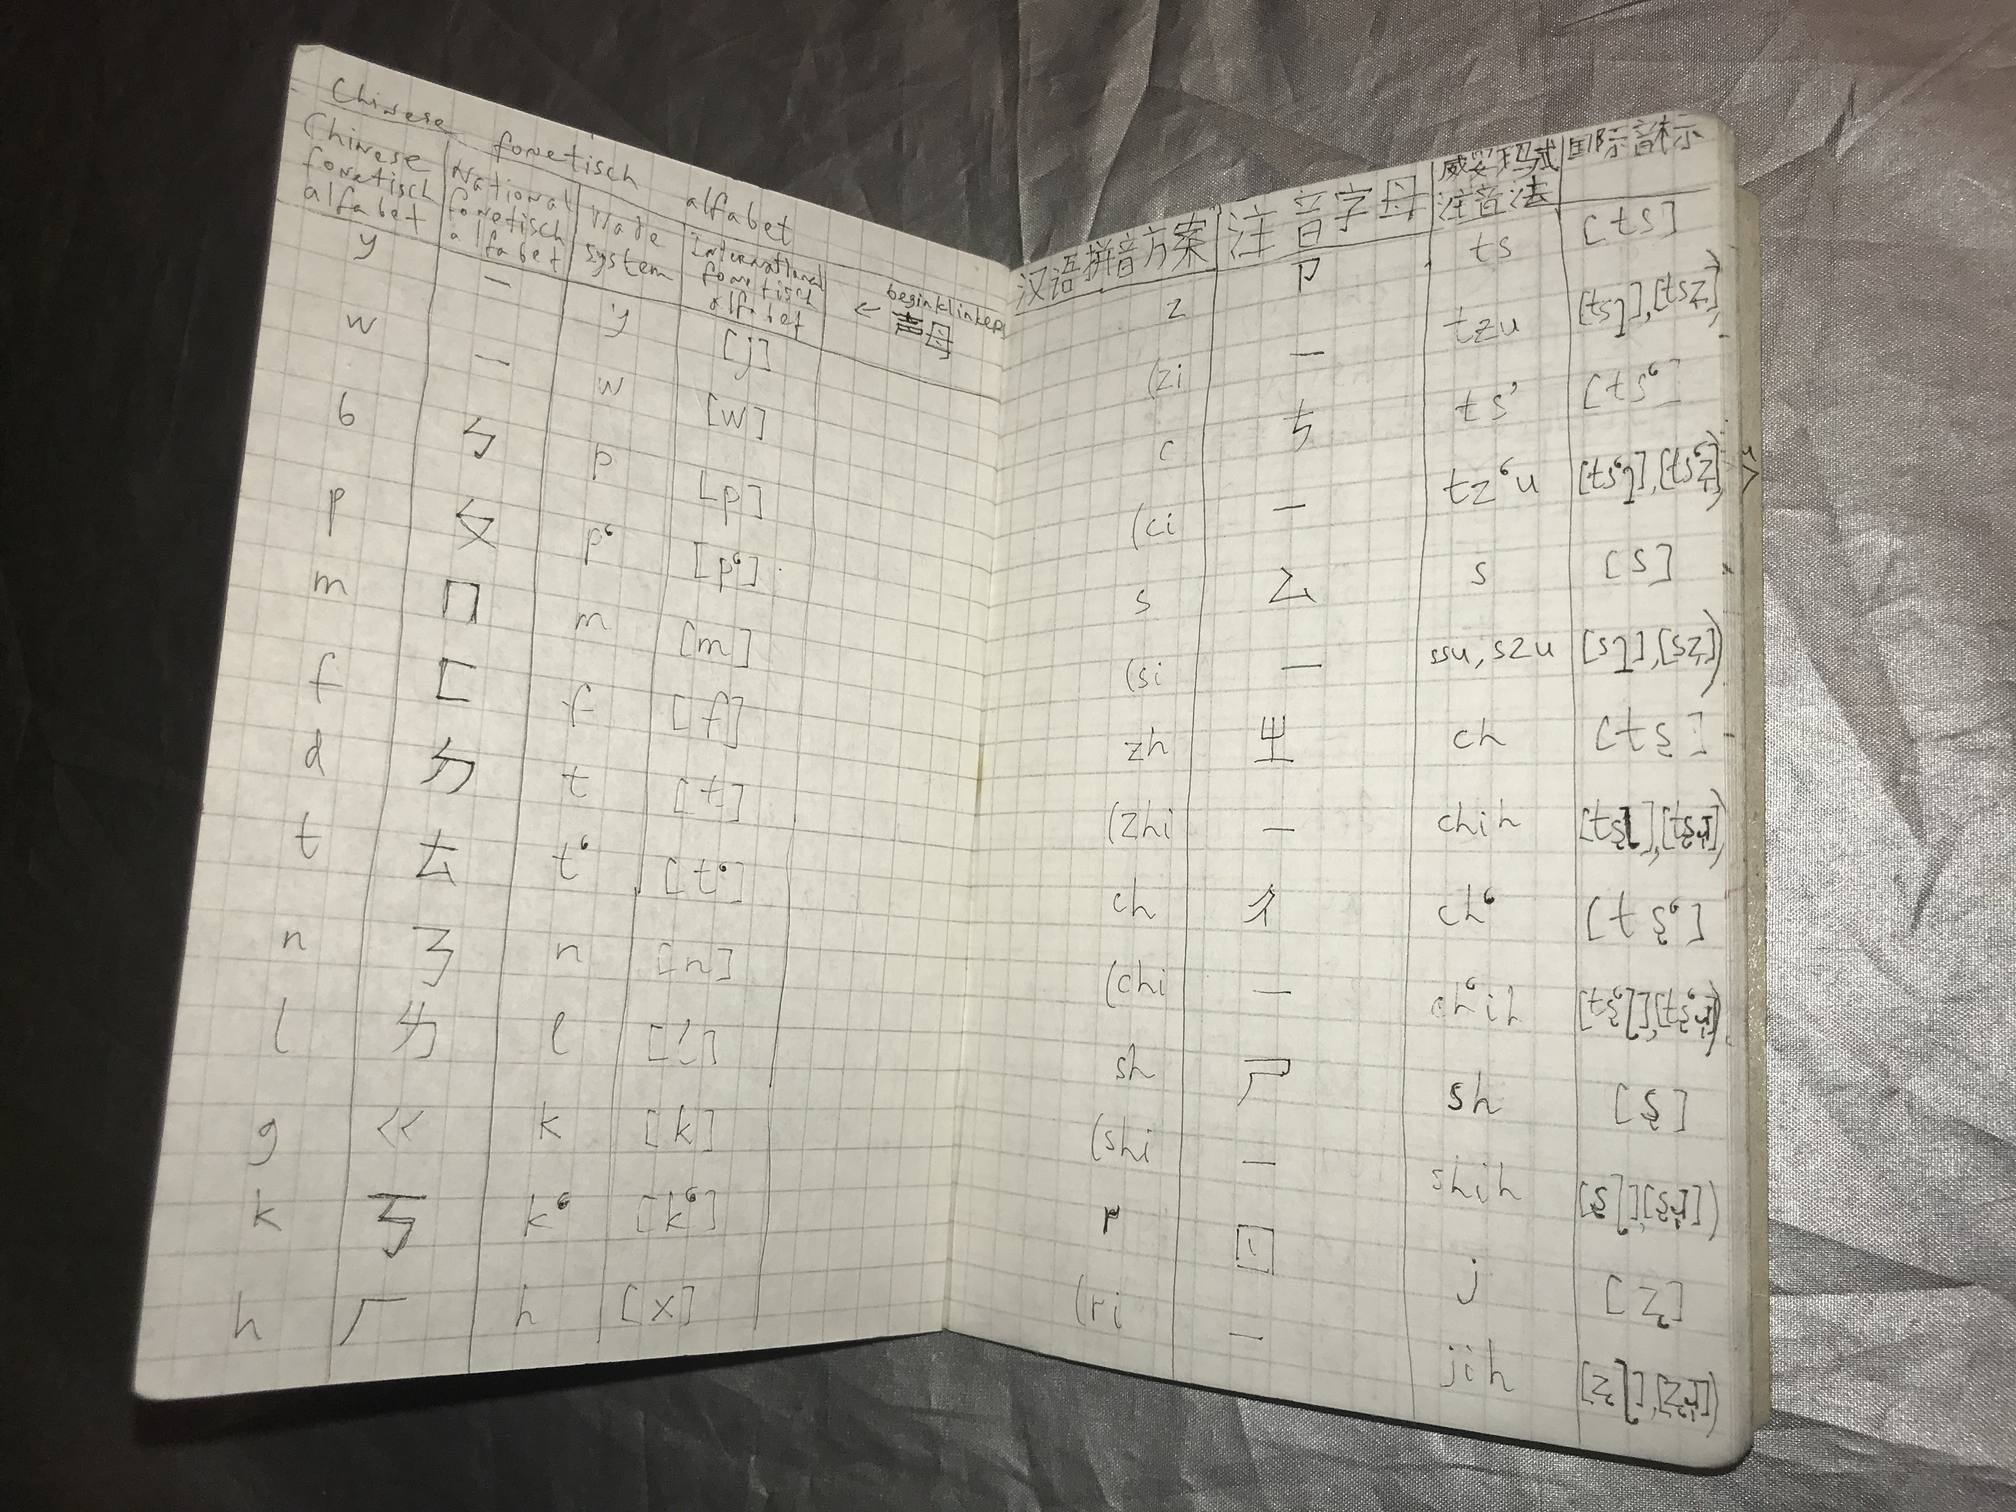 Chinese fonetisch alfabet
Chinese fonetisch alfabet | National fonetisch alfabet | Wade system | International fonetisch alfabet | ← beginklinkers 声母
y — y [j]
w — w [w]
b ㄅ p [p]
p ㄆ p‘ [p‘]
m ㄇ m [m]
f ㄈ f [f]
d ㄉ t [t]
t ㄊ t‘ [t‘]
n ㄋ n [n]
l ㄌ l [l]
g ㄍ k [k]
k ㄎ k‘ [k‘]
h ㄏ h [x]
汉语拼音方案 | 注音字母 | 威妥玛式注音法 | 国际音标
z ㄗ ts [ts]
(zi — tzu [tsɿ],[tsz̩])
c ㄘ ts’ [ts‘]
(ci — tz‘u [ts‘ɿ],[ts‘z̩])
s ㄙ s [s]
(si — ssu, szu [sɿ],[sz̩])
zh ㄓ ch [tʂ]
(zhi — chih [tʂʅ],[tʂɻ̩])
ch ㄔ ch‘ [tʂ‘]
(chi — ch‘ih [tʂ‘ʅ],[tʂ‘ɻ̩])
sh ㄕ sh [ʂ]
(shi — shih [ʂʅ],[ʂɻ̩])
r ㄖ j [ʐ]
(ri — jih [ʐʅ],[ʐɻ̩])